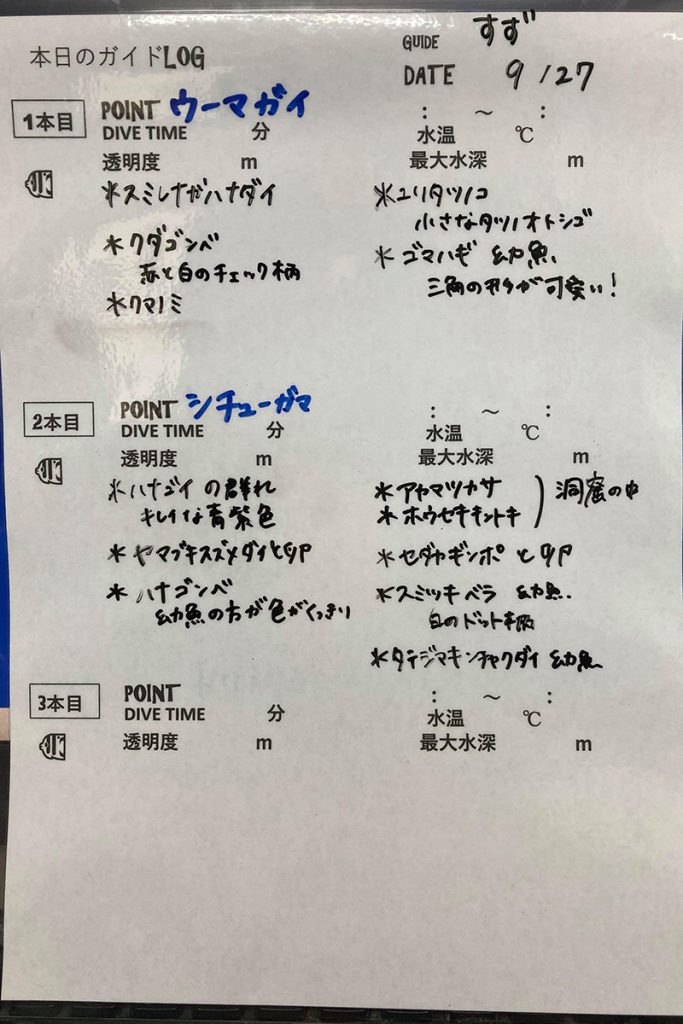 本日のガイドLOG
GUIDE すず
DATE 9/27
1本目 POINT ウーマガイ
DIVE TIME 分 : ～ :
水温 ℃
透明度 m 最大水深 m
*スミレナガハナダイ
*クダゴンベ
赤と白のチェック柄
*クマノミ
*ユリタツノコ
小さなタツノオトシゴ
*ゴマハギ 幼魚
三角の形が可愛い!
2本目 POINT シチューガマ
DIVE TIME 分 : ～ :
水温 ℃
透明度 m 最大水深 m
*ハナゴイの群れ
キレイな青紫色
*ヤマブキスズメダイと卵
*ハナゴンベ
幼魚の方が色がくっきり
*アヤメツカサ
*ホウセキキントキ
)洞窟の中
*セダカギンポと卵
*スミツキベラ 幼魚
白のドット柄
*タテジマキンチャクダイ 幼魚
3本目 POINT
DIVE TIME 分 : ～ :
水温 ℃
透明度 m 最大水深 m